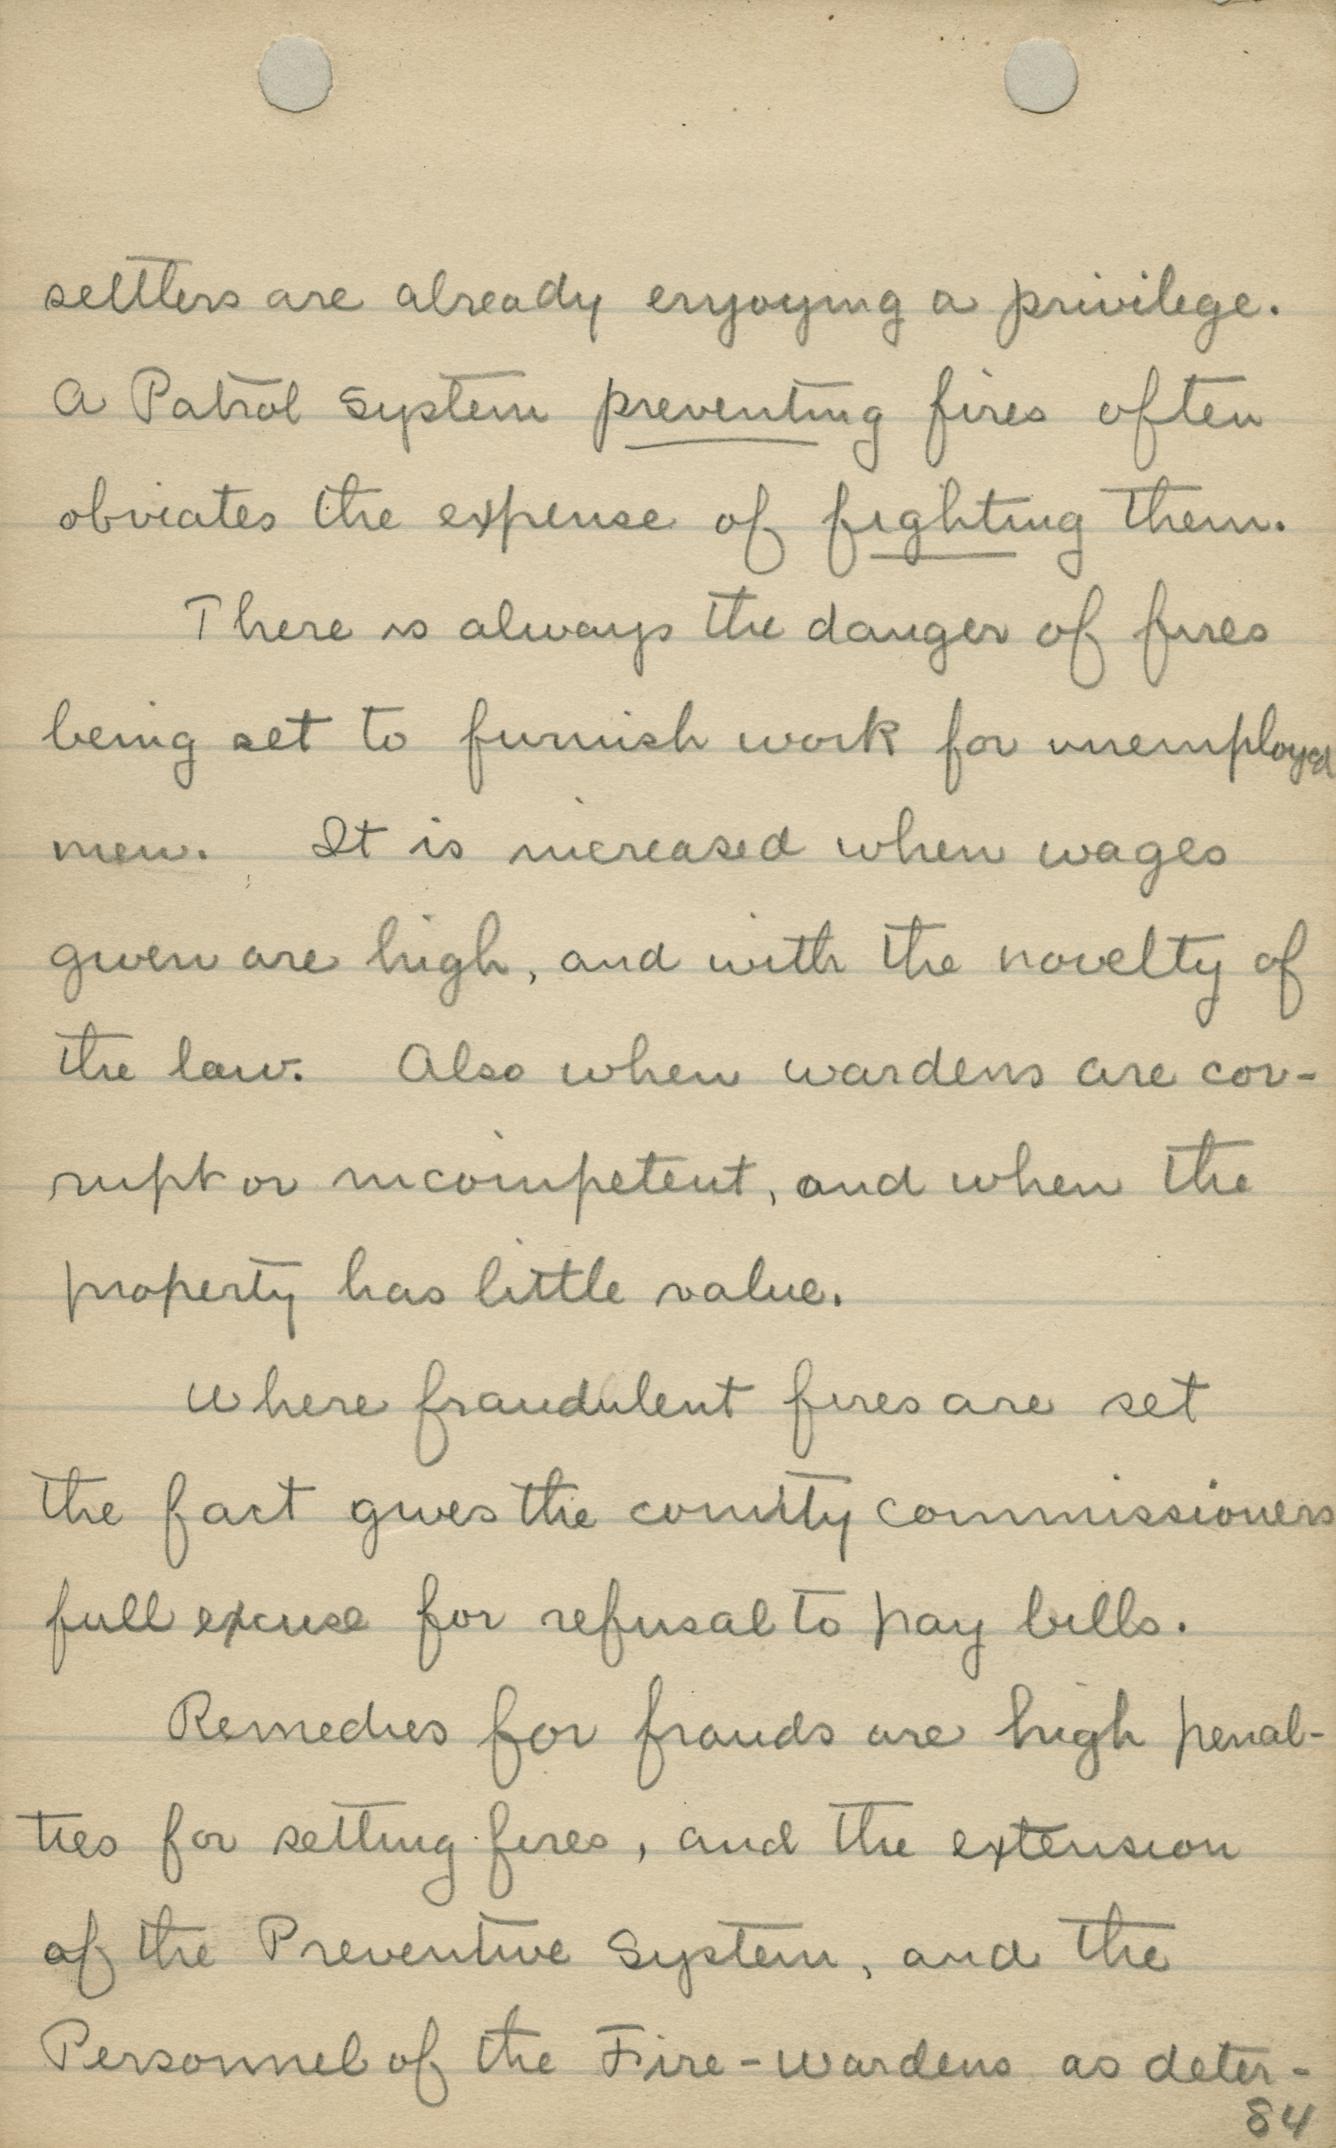 settlers are already enjoying a privilege.
A Patrol System preventing fires often
obviates the expense of fighting them.
There is always the danger of fires
being set to furnish work for unemployed
men. It is increased when wages
given are high, and with the novelty of
the law. Also when wardens are cor-
rupt or incompetent, and when the
property has little value.
Where fraudulent fires are set
the fact gives the county commissioners
full excuse for refusal to pay bills.
Remedies for frauds are high penal-
ties for setting fires, and the extension
of the Preventive System, and the
Personnel of the Fire-wardens as deter-
84